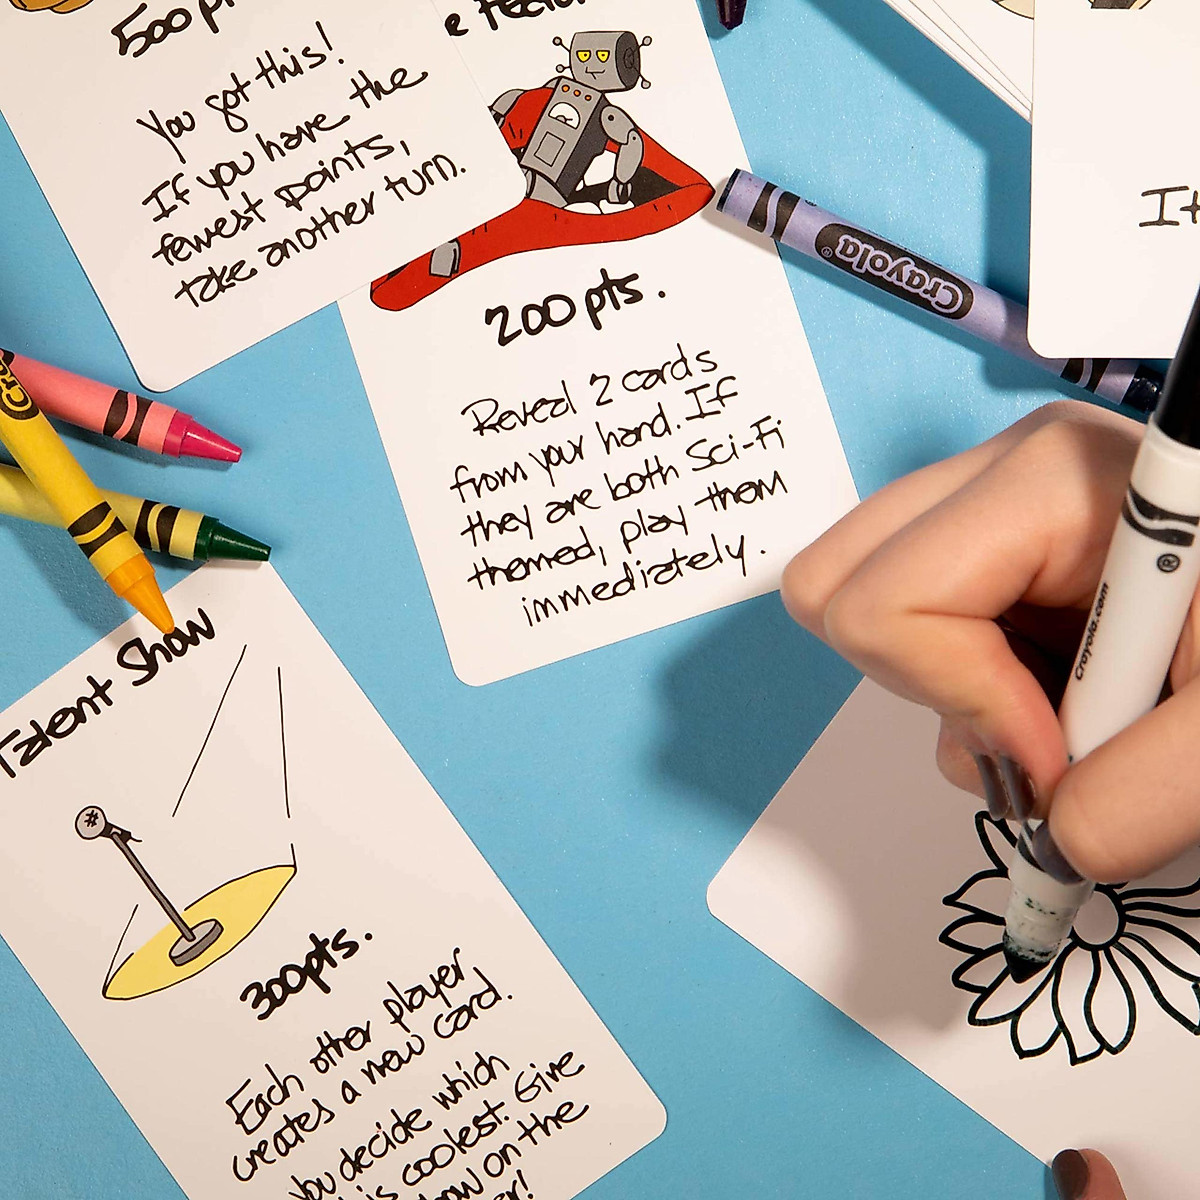 500
You got this!
If you have the
fewest points,
take another turn.
200 pts.
Reveal 2 cards
from your hand. If
they are both Sci-Fi
themed, play them
immediately.
Crayola
It
Talent Show
300pts.
Each other player
creates a new card.
You decide which
is coolest. Give
on the
crayola.com